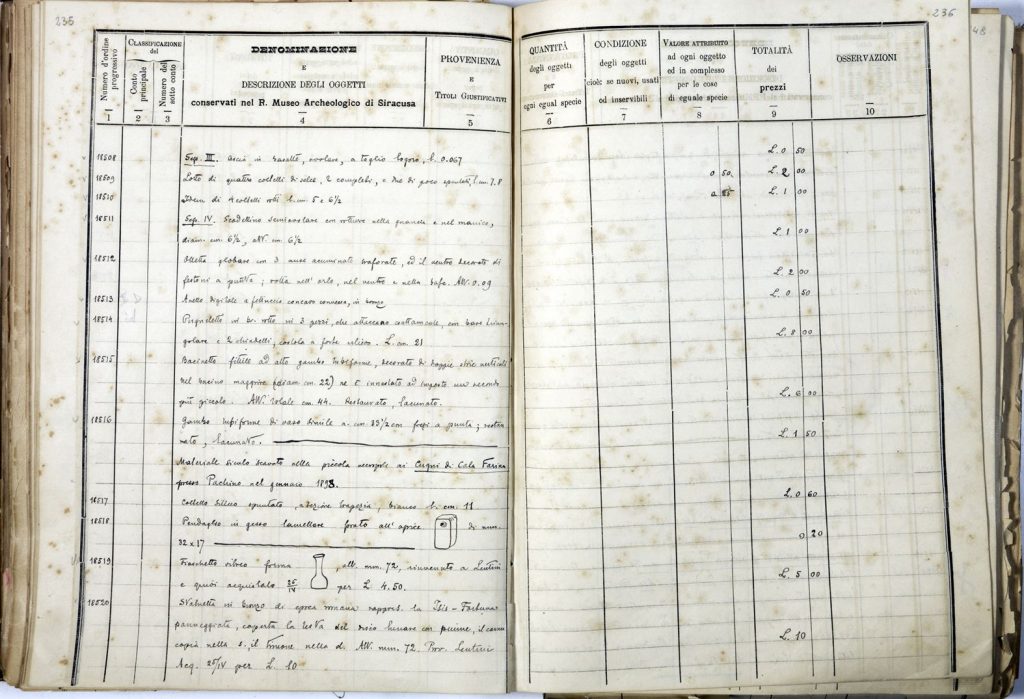 235
Numero d'ordine progressivo
CLASSIFICAZIONE del
Conto principale
Numero del sotto conto
DENOMINAZIONE
E
DESCRIZIONE DEGLI OGGETTI
conservati nel R. Museo Archeologico di Siracusa
PROVENIENZA
E
TITOLI GIUSTIFICATIVI
1 2 3 4 5
18508 Sep. III. Ascia in basalte, ovolare, a taglio logoro, l. 0.067
18509 Lotto di quattro coltelli di selce, 2 completi, e due di poco spuntati, l. cm. 7.8
18510 Idem di 4 coltelli rotti l. cm. 5 e 6½
18511 Sep. IV. Scodellino semiovolare con rotture nella pancia e nel manico,
diam. cm. 6½, alt. cm. 6½
18512 Olletta globare con 3 anse acuminate traforate, ed il ventre decorato di
festoni a ; rotta nell'orlo, nel ventre e nella base. Alt. 0.09
18513 Anello digitale a fettuccia concavo convessa, in bronzo
18514 Pugnaletto in br. rotto in 3 pezzi, che attaccano esattamente, con base trian-
golare e 2 chiodelli, costola a forte rilievo. L. cm. 21
18515 Bacinetto fittile ad alto gambo tubiforme, decorato di strie verticali
Nel bacino maggiore (diam cm. 22) ne è innestato ad imposto un secondo
più piccolo. Alt. totale cm. 44. Restaurato, lacunato.
18516 Gambo tubiforme di vaso simile a. cm. 33½ con fregi a punta; restau-
rato, lacunato.
Materiale siculo scavato nella piccola necropoli ai Cugni di Cala Farina
presso Pachino nel gennaio 1898.
18517 Coltello siliceo spuntato, a sezione trapezia, bianco l. cm. 11
18518 Pendaglio in gesso lamellare forato all'apice di mm.
32 x 17
18519 Fiaschetto vitreo forma , alt. mm. 72, rinvenuto a Lentini
e quivi acquistato 25/IV per L. 4.50.
18520 Statuetta in bronzo di epoca romana rappres. la Isis-Fortuna
panneggiata, coperta la testa del disco lunare con piume, il cornu-
copia nella s., il timone nella d. Alt. mm. 72. Prov. Lentini
Acq. 25/IV per L. 10
236
48
QUANTITÀ
degli oggetti
per
ogni egual specie
CONDIZIONE
degli oggetti
cioè se nuovi, usati
od inservibili
VALORE ATTRIBUITO
ad ogni oggetto
ed in complesso
per le cose
di eguale specie
TOTALITÀ
dei
prezzi
OSSERVAZIONI
6 7 8 9 10
L. 0 50
0 50. L. 2 00
0 25 L. 1 00
L. 1 00
L. 2 00
L. 0 50
L. 8 00
L. 6 00
L. 1 50
L. 0 60
0 20
L. 5 00
L. 10